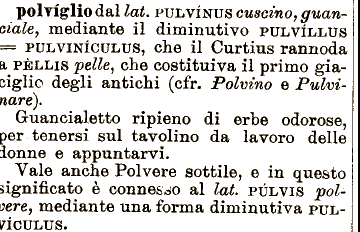 polvíglio dal lat. PULVÍNUS cuscino, guan-
ciale, mediante il diminutivo PULVÍLLUS
= PULVINÍCULUS, che il Curtius rannoda
a PÈLLIS pelle, che costituiva il primo gia-
ciglio degli antichi (cfr. Polvino e Pulvi-
nare).
Guancialetto ripieno di erbe odorose,
per tenersi sul tavolino da lavoro delle
donne e appuntarvi.
Vale anche Polvere sottile, e in questo
significato è connesso al lat. PÚLVIS pol-
vere, mediante una forma diminutiva PUL-
VÍCULUS.